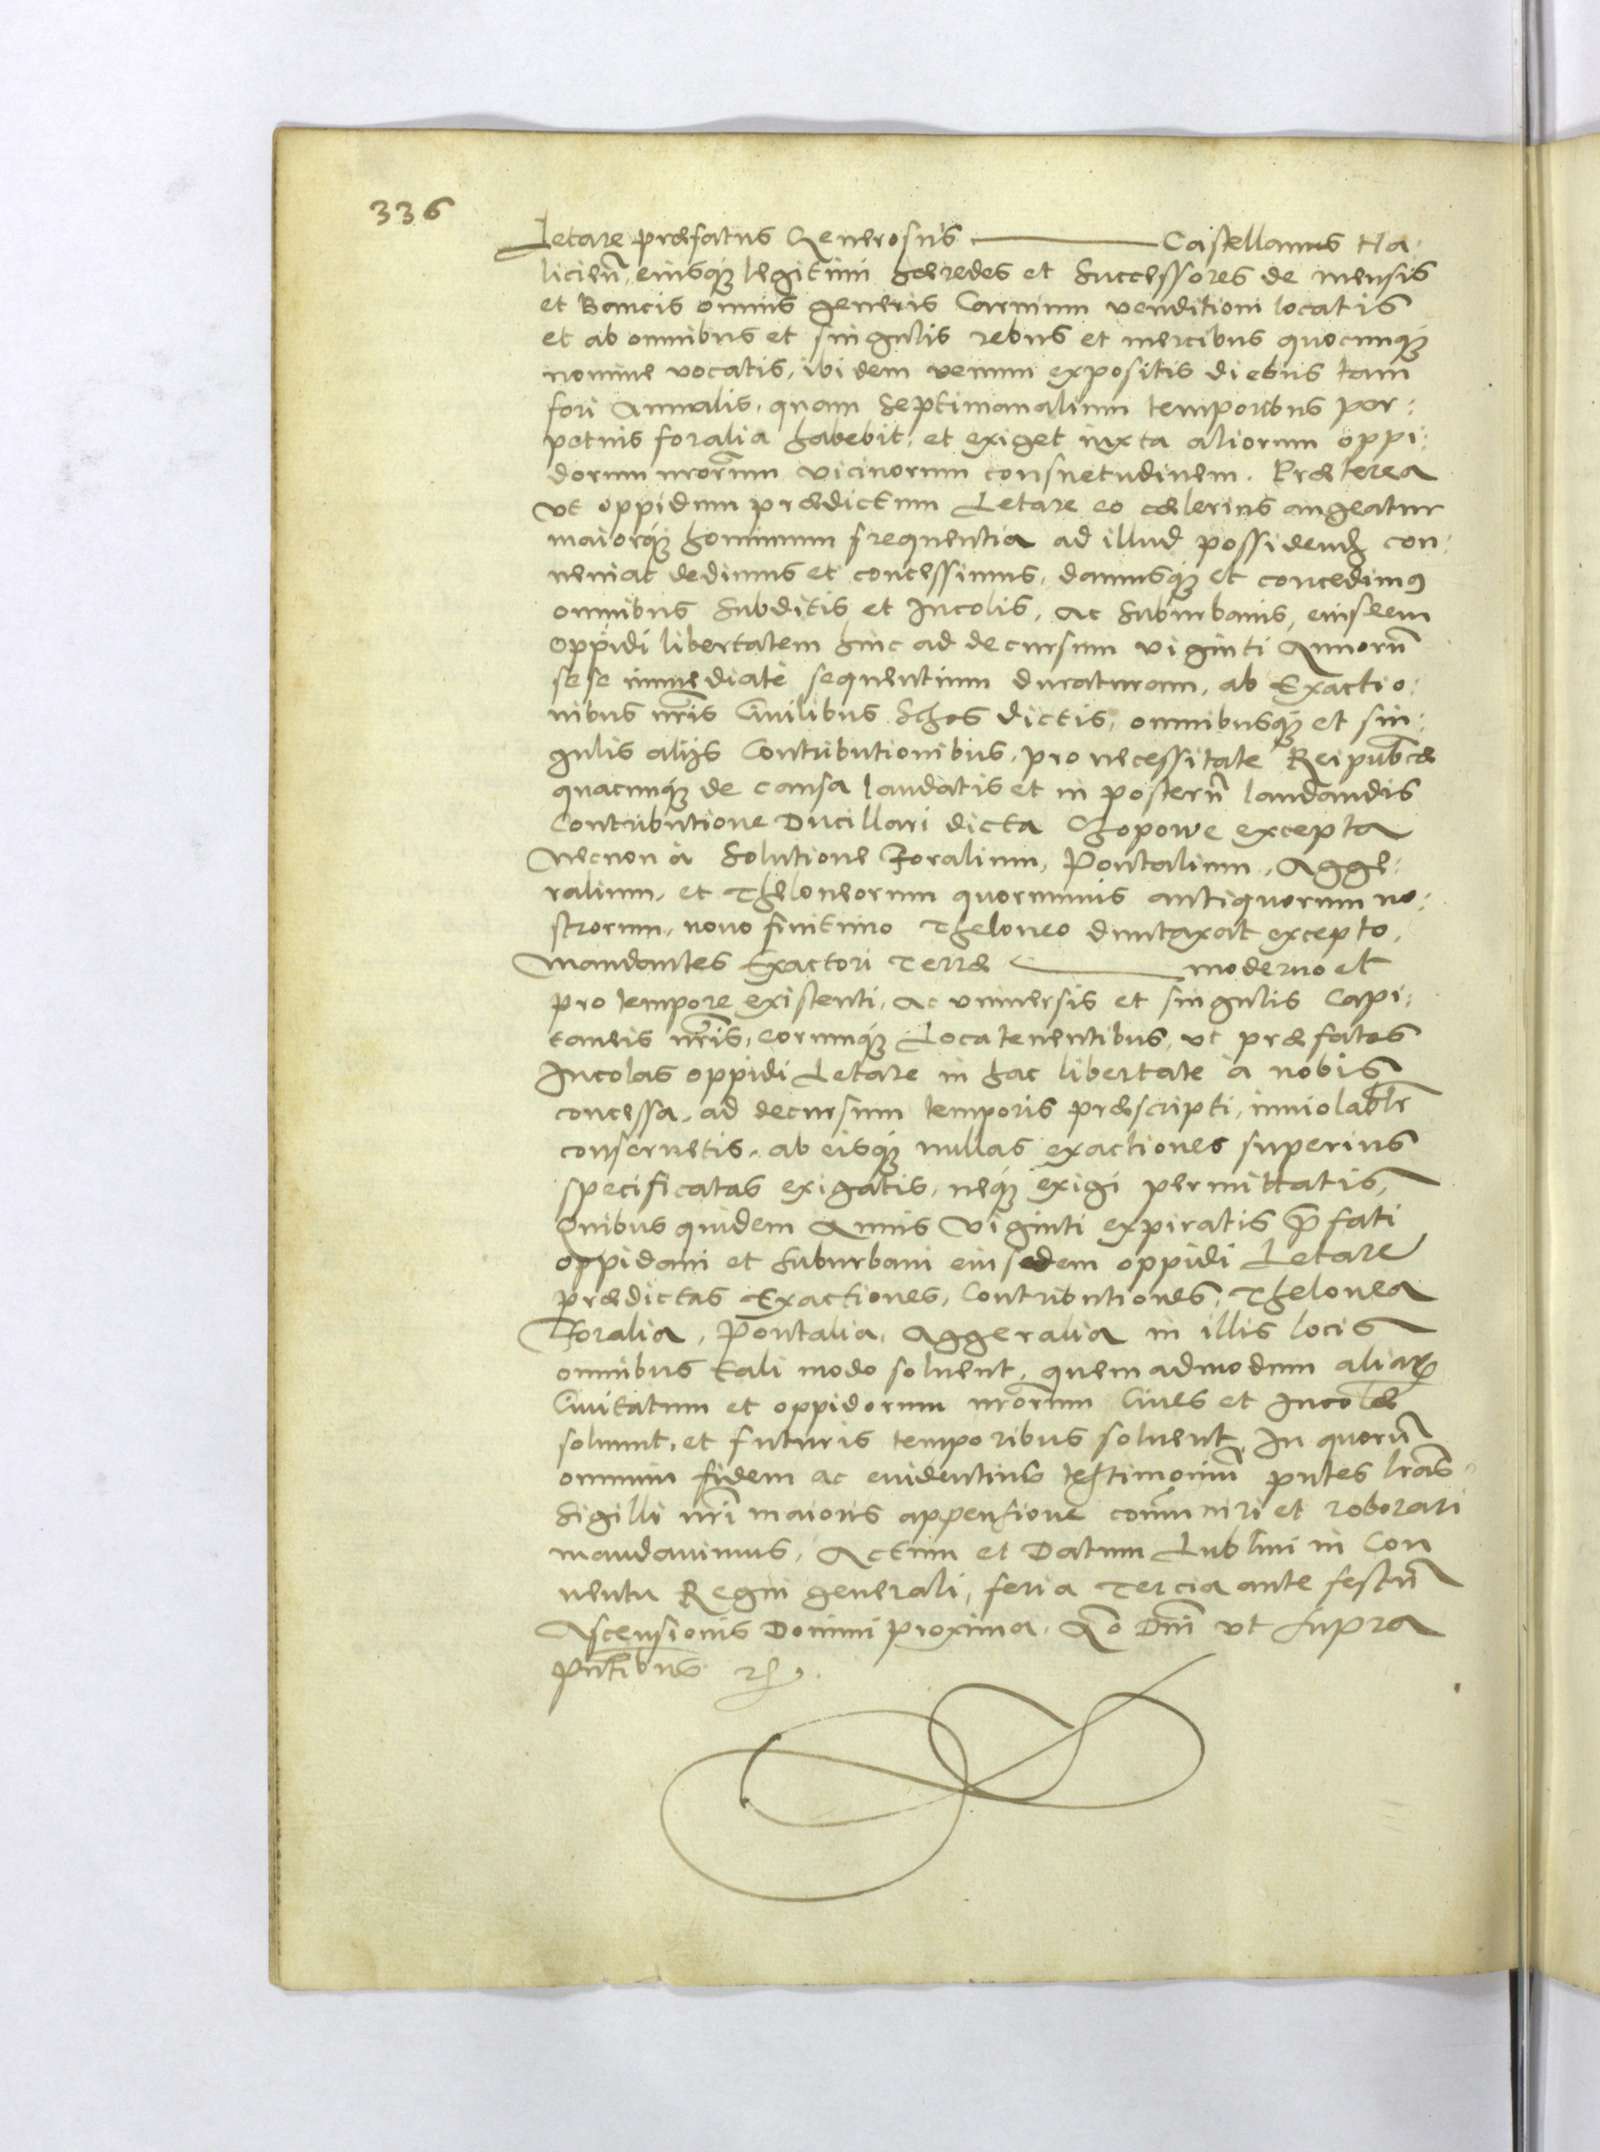 336
Letare præfatus Generosus Castellanus Ha-
licien̄ eiusq; legitimi hæredes et Successores de mensis
et Bancis omnis generis Carnium venditioni locatis
et ab omnibus et singulis rebus et mercibus quocunq;
nomine vocatis, ibidem venum expositis diebus tam
fori Annalis, quam Septimanalium temporibus per-
petuis foralia habebit, et exiget iuxta aliorum oppi-
dorum nr̄orum vicinorum consuetudinem. Præterea
vt oppidum prædictum Letare eo cælerius augeatur
maiorq; hominum frequentia ad illud possidend con-
ueniat dedimus et concessimus, damusq; et concedimꝰ
omnibus Subditis et Incolis, ac Suburbanis, eiusdem
Oppidi libertatem hinc ad decursum viginti Annorū
sese immediatè sequentium duraturam, ab Exactio-
nibus nr̄is Ciuilibus Schos dictis, omnibusq; et sin-
gulis alijs Contributionibus, pro necessitate Reipub̄cæ
quacunq; de causa laudatis et in posterū laudandis
Contributione Ducillari dicta Czopowe excepta
Necnon à Solutione Foralium, Pontalium, Agge-
ralium, et Theloneorum quorumuis antiquorum no-
strorum, nouo finitimo Theloneo duntaxat excepto,
Mandantes Exactori Terræ moderno et
pro tempore existenti, Ac vniuersis et singulis Capi-
taneis nr̄is, eorumq; Locatenentibus, vt præfatos
Incolas oppidi Letare in hac libertate à nobis
concessa, ad decursum temporis præscripti, inuiolabl̄r
conseruetis, ab eisq; nullas exactiones superius
specificatas exigatis, neq; exigi permittatis,
Quibus quidem Annis Viginti expiratis p̄fati
oppidani et Suburbani eiusdem oppidi Letare
prædictas Exactiones, Contributiones, Thelonea
Foralia, Pontalia, Aggeralia in illis locis
omnibus tali modo soluent, quemadmodum aliarꝝ
Ciuitatum et oppidorum nr̄orum Ciues et Incolæ
soluunt, et futuris temporibus soluent, In quorū
omnium fidem ac euidentius testimoniū pn̄tes l̄ras
Sigilli nr̄i maioris appensione com̄uniri et roborari
mandauimus, Actum et Datum Lublini in Con
uentu Regni generali, feria Tercia ante festū
Ascensionis Domini proxima. An̄o Dn̄i vt supra
Pn̄tibus